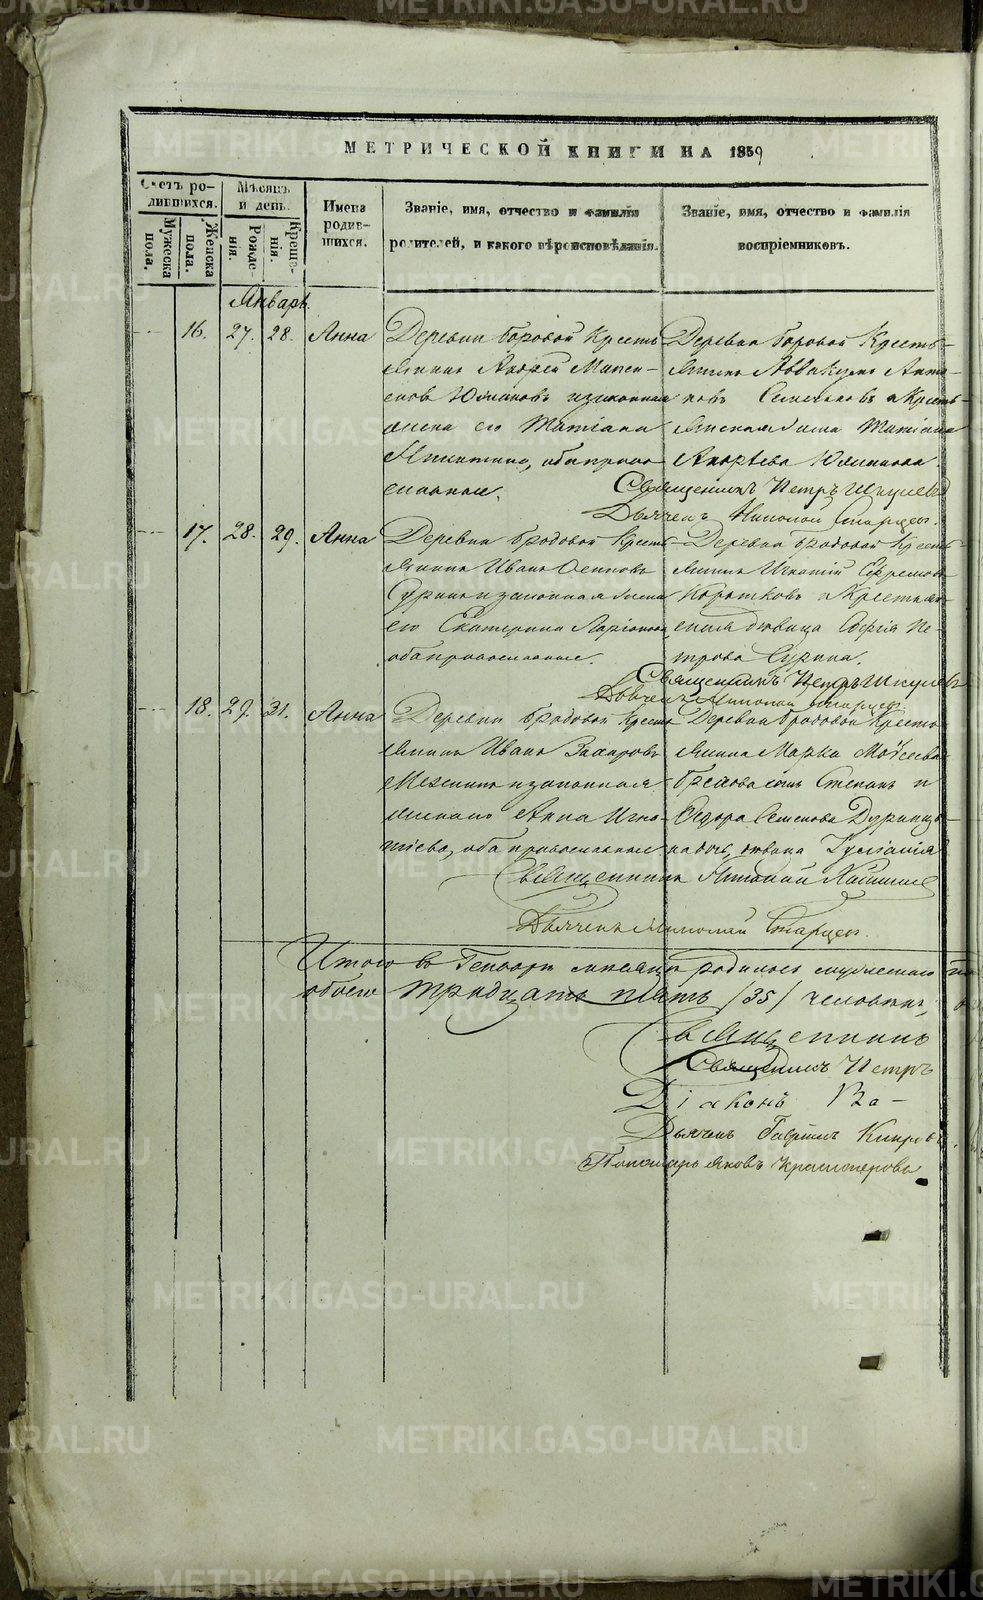 METRIKI.GASO-URAL.RU
МЕТРИЧЕСКОЙ КНИГИ НА 1859
Счетъ ро-
дившихся.
Мужеска
пола.
Женска
пола.
Мѣсяцъ
и день.
Рожде-
нія.
Креще-
нія.
Имена
родив-
шихся.
Званіе, имя, отчество и фамилія
родителей, и какого вѣроисповѣданія.
Званіе, имя, отчество и фамилія
воспріемниковъ.
Январь
16. 27. 28. Анна
Деревни боровой Кресть
янинъ Андрей
и законная
жена его Татіана
Никитина, оба право
славные.
Деревни боровой Кресть-
янинъ Аввакумъ Анто-
новъ и Кресть-
янская Татіана
Андрѣева
Священникъ Петръ
Дьячекъ Николай Старцевъ.
17. 28. 29. Анна
Деревни бродовой Кресть-
янинъ Иванъ Осиповъ
Суринъ и законная жена
его Екатерина Ларіонова,
оба православные.
Деревни бродовой Кресть-
янинъ Игнатій Ефремовъ
Коротковъ и Крестьян-
ская дѣвица Софія Пе-
трова Сурина.
Священникъ Петръ
Дьячекъ Николай Старцевъ.
18. 29. 31. Анна
Деревни бродовой Кресть-
янинъ Иванъ Захаровъ
и законная
жена его Анна Игна-
тіева, оба православные
Деревни бродовой Кресть-
янина Марка Моѵсеева
сынъ Степанъ и
Ѳедора Семенова
дочь, дѣвица
Священникъ
Дьячекъ Николай Старцевъ.
Итого въ Генварѣ мѣсяцѣ родилось мужескаго
обоего тридцать пять /35/ человѣкъ,
Священникъ
Священникъ Петръ
Діаконъ Ва-
Дьячекъ Гавріилъ Кипровъ.
Пономарь Яковъ Красноперовъ